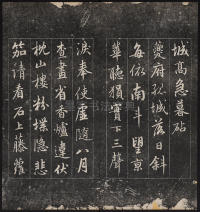 城高急暮砧
夔府孤城落日斜
每依南斗望京
華聽猿實下三聲
淚奉使虛隨八月
查畫省香爐違伏
枕山樓粉堞隱悲
笳請看石上藤蘿